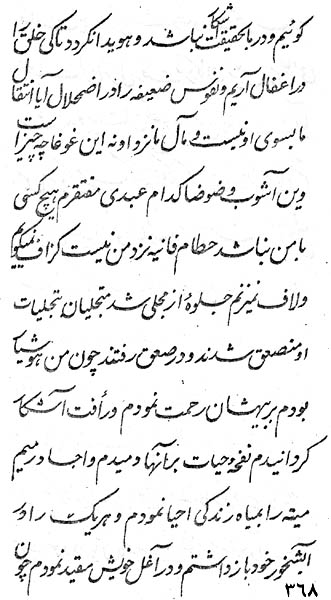 کوئیم و در ما حقیقت شک نباشد و هویدا نکردد تاکی خلق را
در اغفال آریم و نفوس ضعیفه را در اضمحلال آیا انتقال
ما بسوی او نیست و مآل ما نزد او نه این غوغا چه چیز است
وین آشوب و ضوضا کدام عبدی مفتقرم هیچ کسی
با من نباشد حطام فانیه نزد من نیست کزاف نمیگویم
ولاف نمیزنم جلوهٔ از مجلی شد متجلیان تجلیات
او منصعق شدند و در صعق رفتند چون من هوشیار
بودم بر بیهشان رحمت نمودم و رأفت آشکار
کردانیدم نفحهٔ حیات بر آنها دمیدم و اجساد رمیم
میته را بمیاه زندکی احیا نمودم و هر یک را در
آبشخور خود باز داشتم و در آغل خویش مقید نمودم چون
۳۶۸